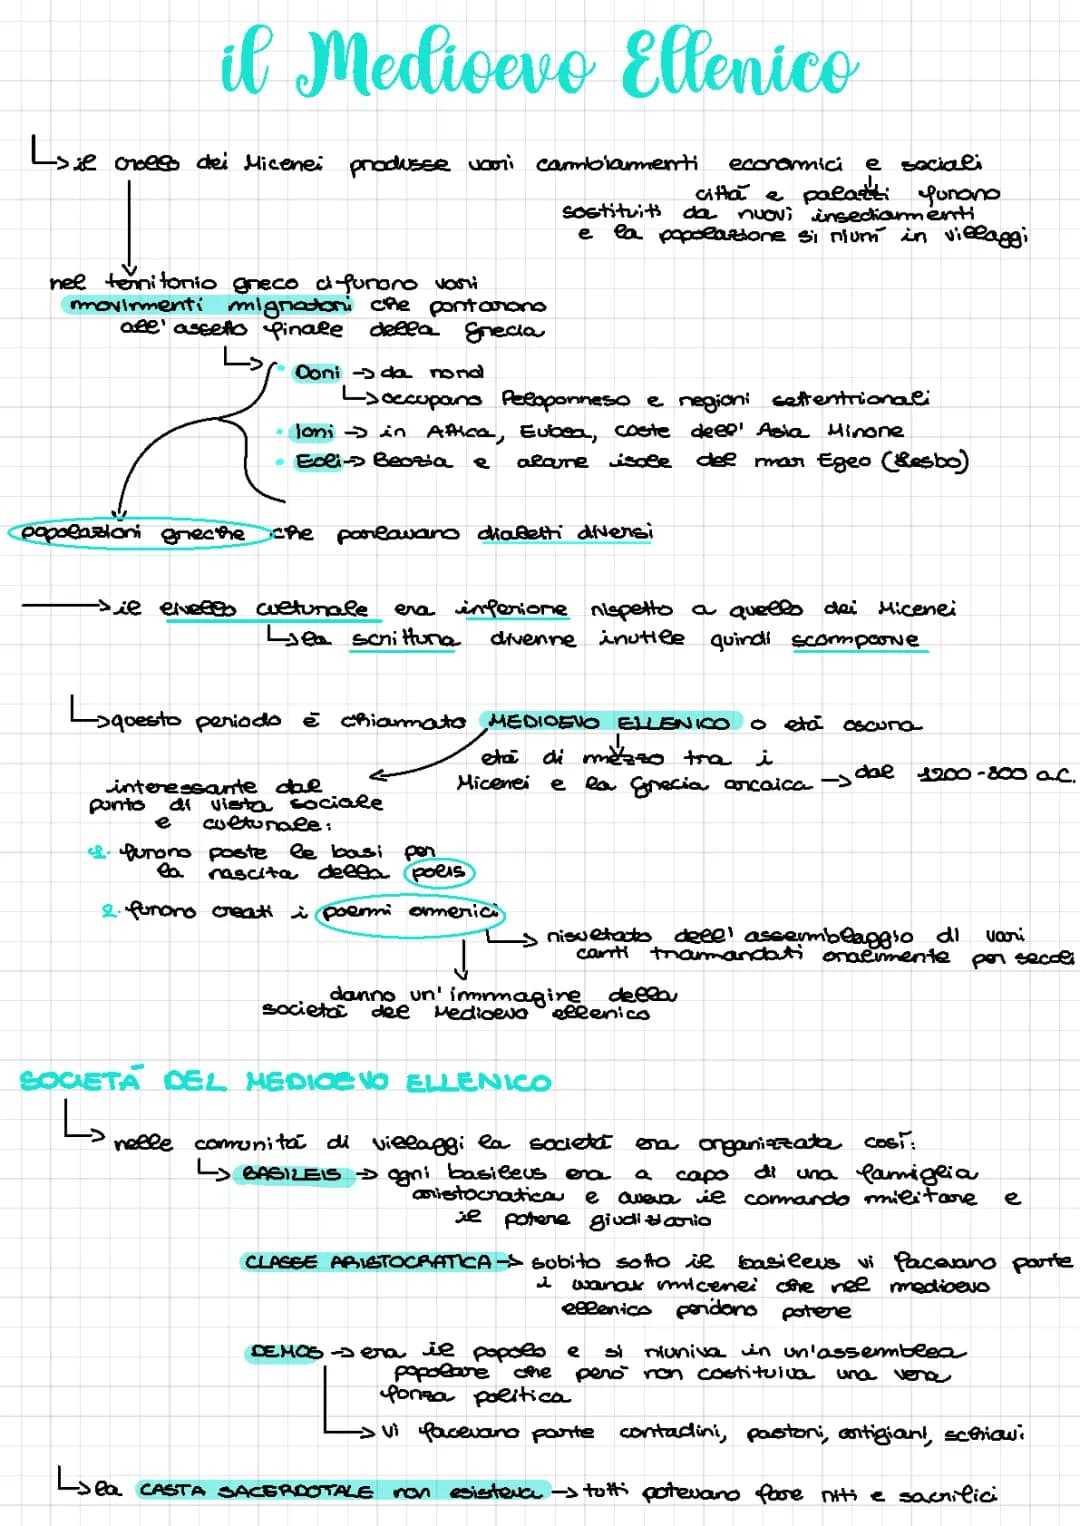 il Medioevo Ellenico
il crollo dei Micenei produsse vari cambiamenti economici e sociali
città e palazzi furono
sostituiti da nuovi insediamenti
e la popolazione si riunì in villaggi
nel territorio greco ci furono vari
movimenti migratori che portarono
all'assetto finale della Grecia
• Dori → da nord
occupano Peloponneso e regioni settentrionali
• Ioni → in Attica, Eubea, coste dell'Asia Minore
• Eoli → Beozia e alcune isole del mar Egeo (Lesbo)
popolazioni greche che parlavano dialetti diversi
il livello culturale era inferiore rispetto a quello dei Micenei
la scrittura divenne inutile quindi scompare
questo periodo è chiammato MEDIOEVO ELLENICO o età oscura
età di mezzo tra i
Micenei e la Grecia arcaica → dal 1200-800 a.C.
interessante dal
punto di vista sociale
e culturale:
1. furono poste le basi per
la nascita della polis
2. furono creati i poemi omerici
risultato dell'assemblaggio di vari
canti tramandati oralmente per secoli
danno un'immagine della
società del Medioevo ellenico
SOCIETÀ DEL MEDIOEVO ELLENICO
nelle comunità di villaggi la società era organizzata così:
BASILEIS → ogni basileus era a capo di una famiglia
aristocratica e aveva il comando militare e
il potere giudiziario
CLASSE ARISTOCRATICA → subito sotto il basileus vi facevano parte
i wanax micenei che nel medioevo
ellenico perdono potere
DEMOS → era il popolo e si riuniva in un'assemblea
popolare che però non costituiva una vera
forza politica
vi facevano parte contadini, pastori, artigiani, schiavi
la CASTA SACERDOTALE non esisteva → tutti potevano fare riti e sacrifici